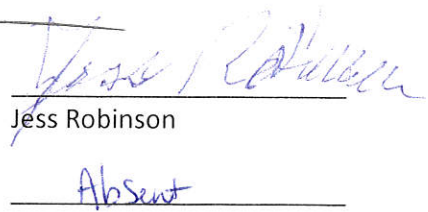 Jess Robinson
Jess Robinson
Absent